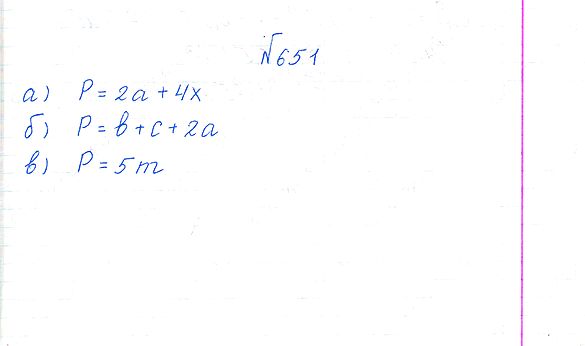 №651
а) P = 2a + 4x
б) P = b + c + 2a
в) P = 5m